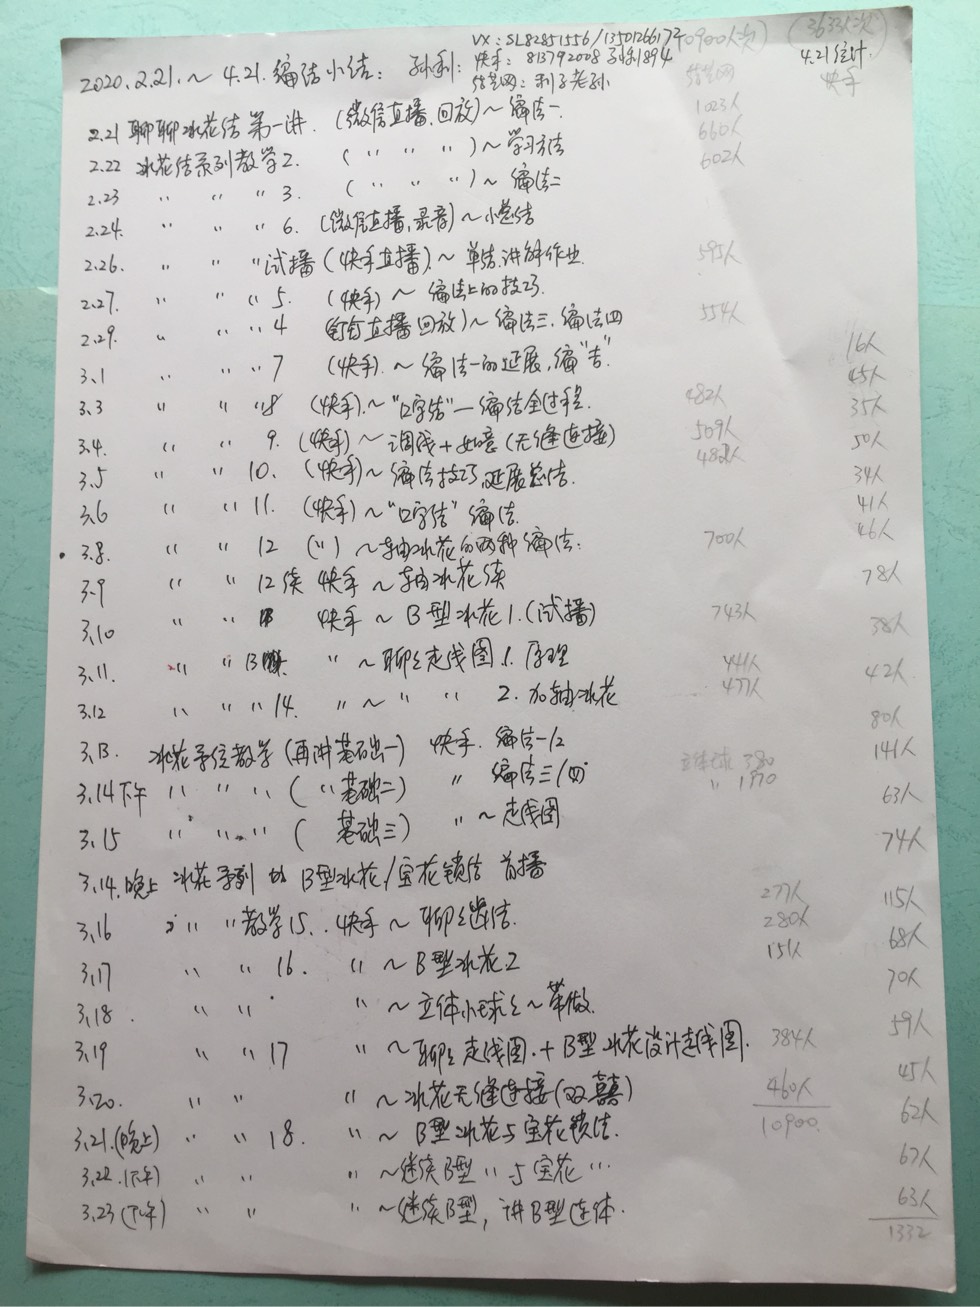 VX：SL82851556/13501266172 (10900人次) (3633人次)
2020.2.21.～4.21.编结小结： 孙利： 快手：813792008 孙利1894 4.21统计.
结艺网：利子老孙 结艺网 快手
2.21 聊聊冰花结第一讲. (微信直播.回放)～编法一. 1023人
2.22 冰花结系列教学2. (〃 〃 〃)～学习方法 660人
2.23 〃 〃 〃3. (〃 〃 〃)～编法二 602人
2.24. 〃 〃 〃6. (微信直播.录音)～小总结
2.26. 〃 〃 〃试播(快手直播).～单结.讲解作业. 595人
2.27. 〃 〃 〃5. (快手)～编法上的技巧.
2.29. 〃 〃 〃4 钉钉直播回放)～编法三.编法四 554人
3.1 〃 〃 〃7 (快手).～编法一的延展,编“吉”. 16人
3.3 〃 〃 〃8 (快手).～“口字结”一编结全过程. 482人 45人
3.4. 〃 〃 9. (快手)～调线+如意(无缝连接) 509人 35人
3.5 〃 〃 10. (快手)～编法技巧,延展总结. 482人 50人
3.6 〃 〃 11. (快手)～“口字结”编法. 34人
3.8. 〃 〃 12 (〃)～轴冰花的两种编法. 700人 41人
3.9 〃 〃 12续 快手～轴冰花续 46人
3.10 〃 〃 快手～B型冰花1.(试播) 743人 78人
3.11. 〃 〃 B 〃～聊聊走线图.1.原理 441人 38人
3.12 〃 〃 〃14. 〃～〃 〃 2.加轴冰花 477人 42人
3.13. 冰花系统教学(再讲基础一) 快手. 编法一/2 80人
3.14下午 〃 〃 〃 (〃基础二) 〃 编法三/四 立体球 380 141人
〃 1570
3.15 〃 〃 〃 (基础三) 〃～走线图 63人
3.14.晚上 冰花系列 B型冰花/宝花锁结 首播 74人
3.16 〃 〃教学15.. 快手～聊聊结. 277人 115人
3.17 〃 〃 16. 〃～B型冰花2 280人 68人
3.18. 〃 〃 〃～立体小球～带做. 151人 70人
3.19 〃 〃 17 〃～聊聊走线图.+B型冰花设计走线图. 384人 59人
3.20. 〃 〃 〃～冰花无缝连接(双囍) 460人 45人
3.21.(晚上) 〃 〃 18. 〃～B型冰花与宝花锁结. 10900. 62人
3.22.(下午) 〃 〃 〃～继续B型〃与宝花… 67人
3.23(下午) 〃 〃 〃～继续B型,讲B型连体. 63人
1332